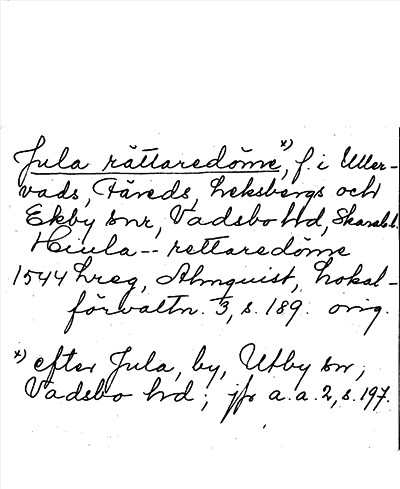 Jula rättaredöme*), f. i Uller-
vads, Färeds, Leksbergs och
Ekby snr, Vadsbo hd, Skarab.l.
Hiula -- rettaredöme
1544 Lreg, Almquist, Lokal-
förvaltn. 3, s. 189. orig.
*) efter Jula, by, Utby sn,
Vadsbo hd; jfr a.a. 2, s. 197.